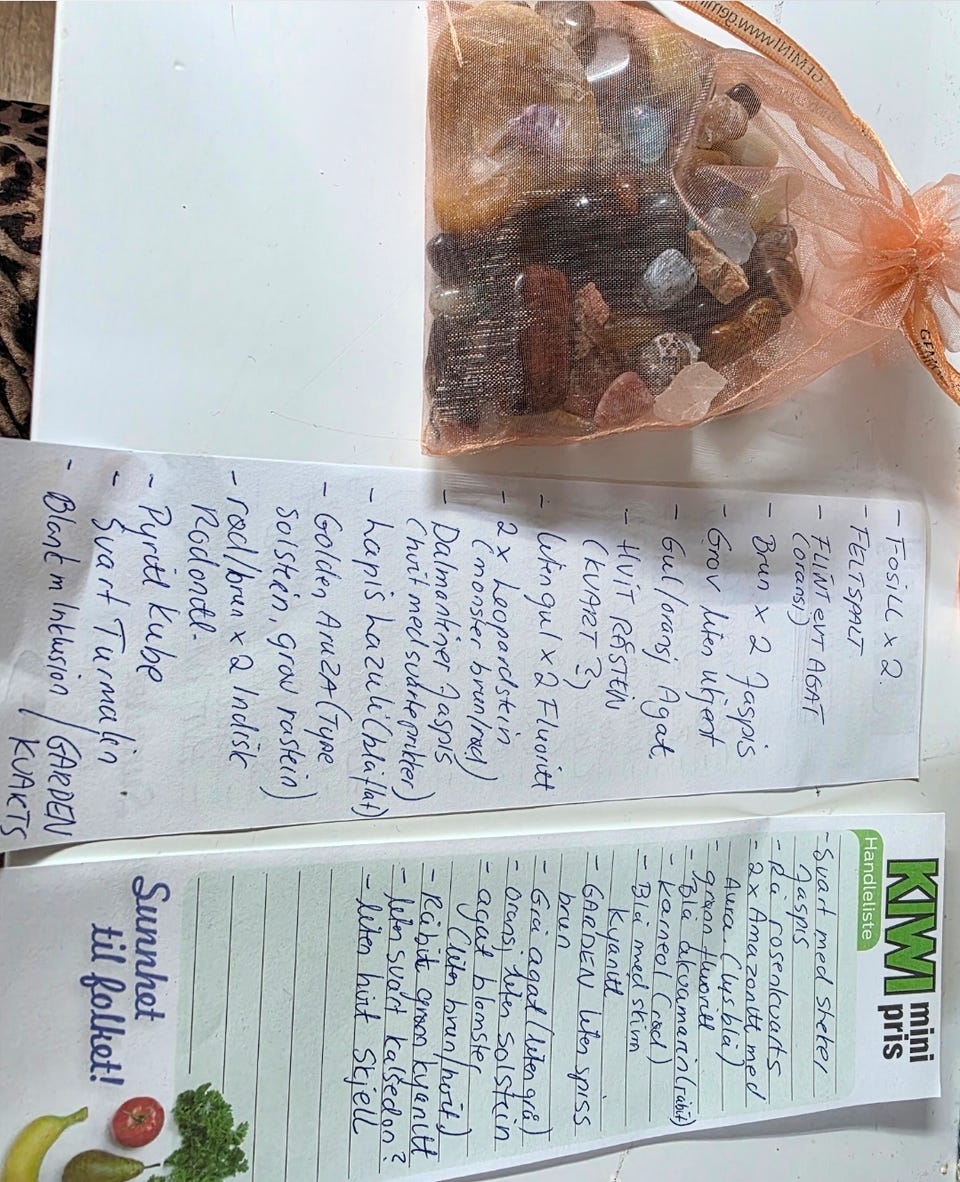 GEMINI WWW.gemin
GEMI
- FOSILL x 2
- FELTSPALT
- FLINT evt AGAT
(oransj)
- Brun x 2 Jaspis
- Grov liten ukjent
- Gul/oransj Agat.
- HVIT RÅSTEIN
(KVART?)
- liten gul x 2 Fluoritt
- 2 x Leopardstein
(monster brun/rød)
- Dalmantiner Jaspis
(hvit med svarte prikker)
- Lapis Lazuli (blå flat)
- Golden AruZA (Type
Solstein, grov rastein)
- rød/brun x 2 Indisk
Rodonitt.
- Pyritt Kube
- Svart Turmalin
- Blant m Inklusion / GARDEN
KVARTS
KIWI mini
pris
Handleliste
- Svart med streker
Jaspis
- Rå rosenkvarts
- 2x Amazonitt med
Aura (lys blå)
- grønn fluoritt
- Blå akvamarin (råbit)
- Karneol (rød)
- Blå med skim
kyanitt
- GARDEN liten spiss
brun
- Grå agat (liten grå)
- Oransj liten Solstein
- agat blomster
(liten brun/hvit)
- Råbit grønn kyanitt
- liten svart kalsedon?
- liten hvit Skjell
Sunnhet
til folket!